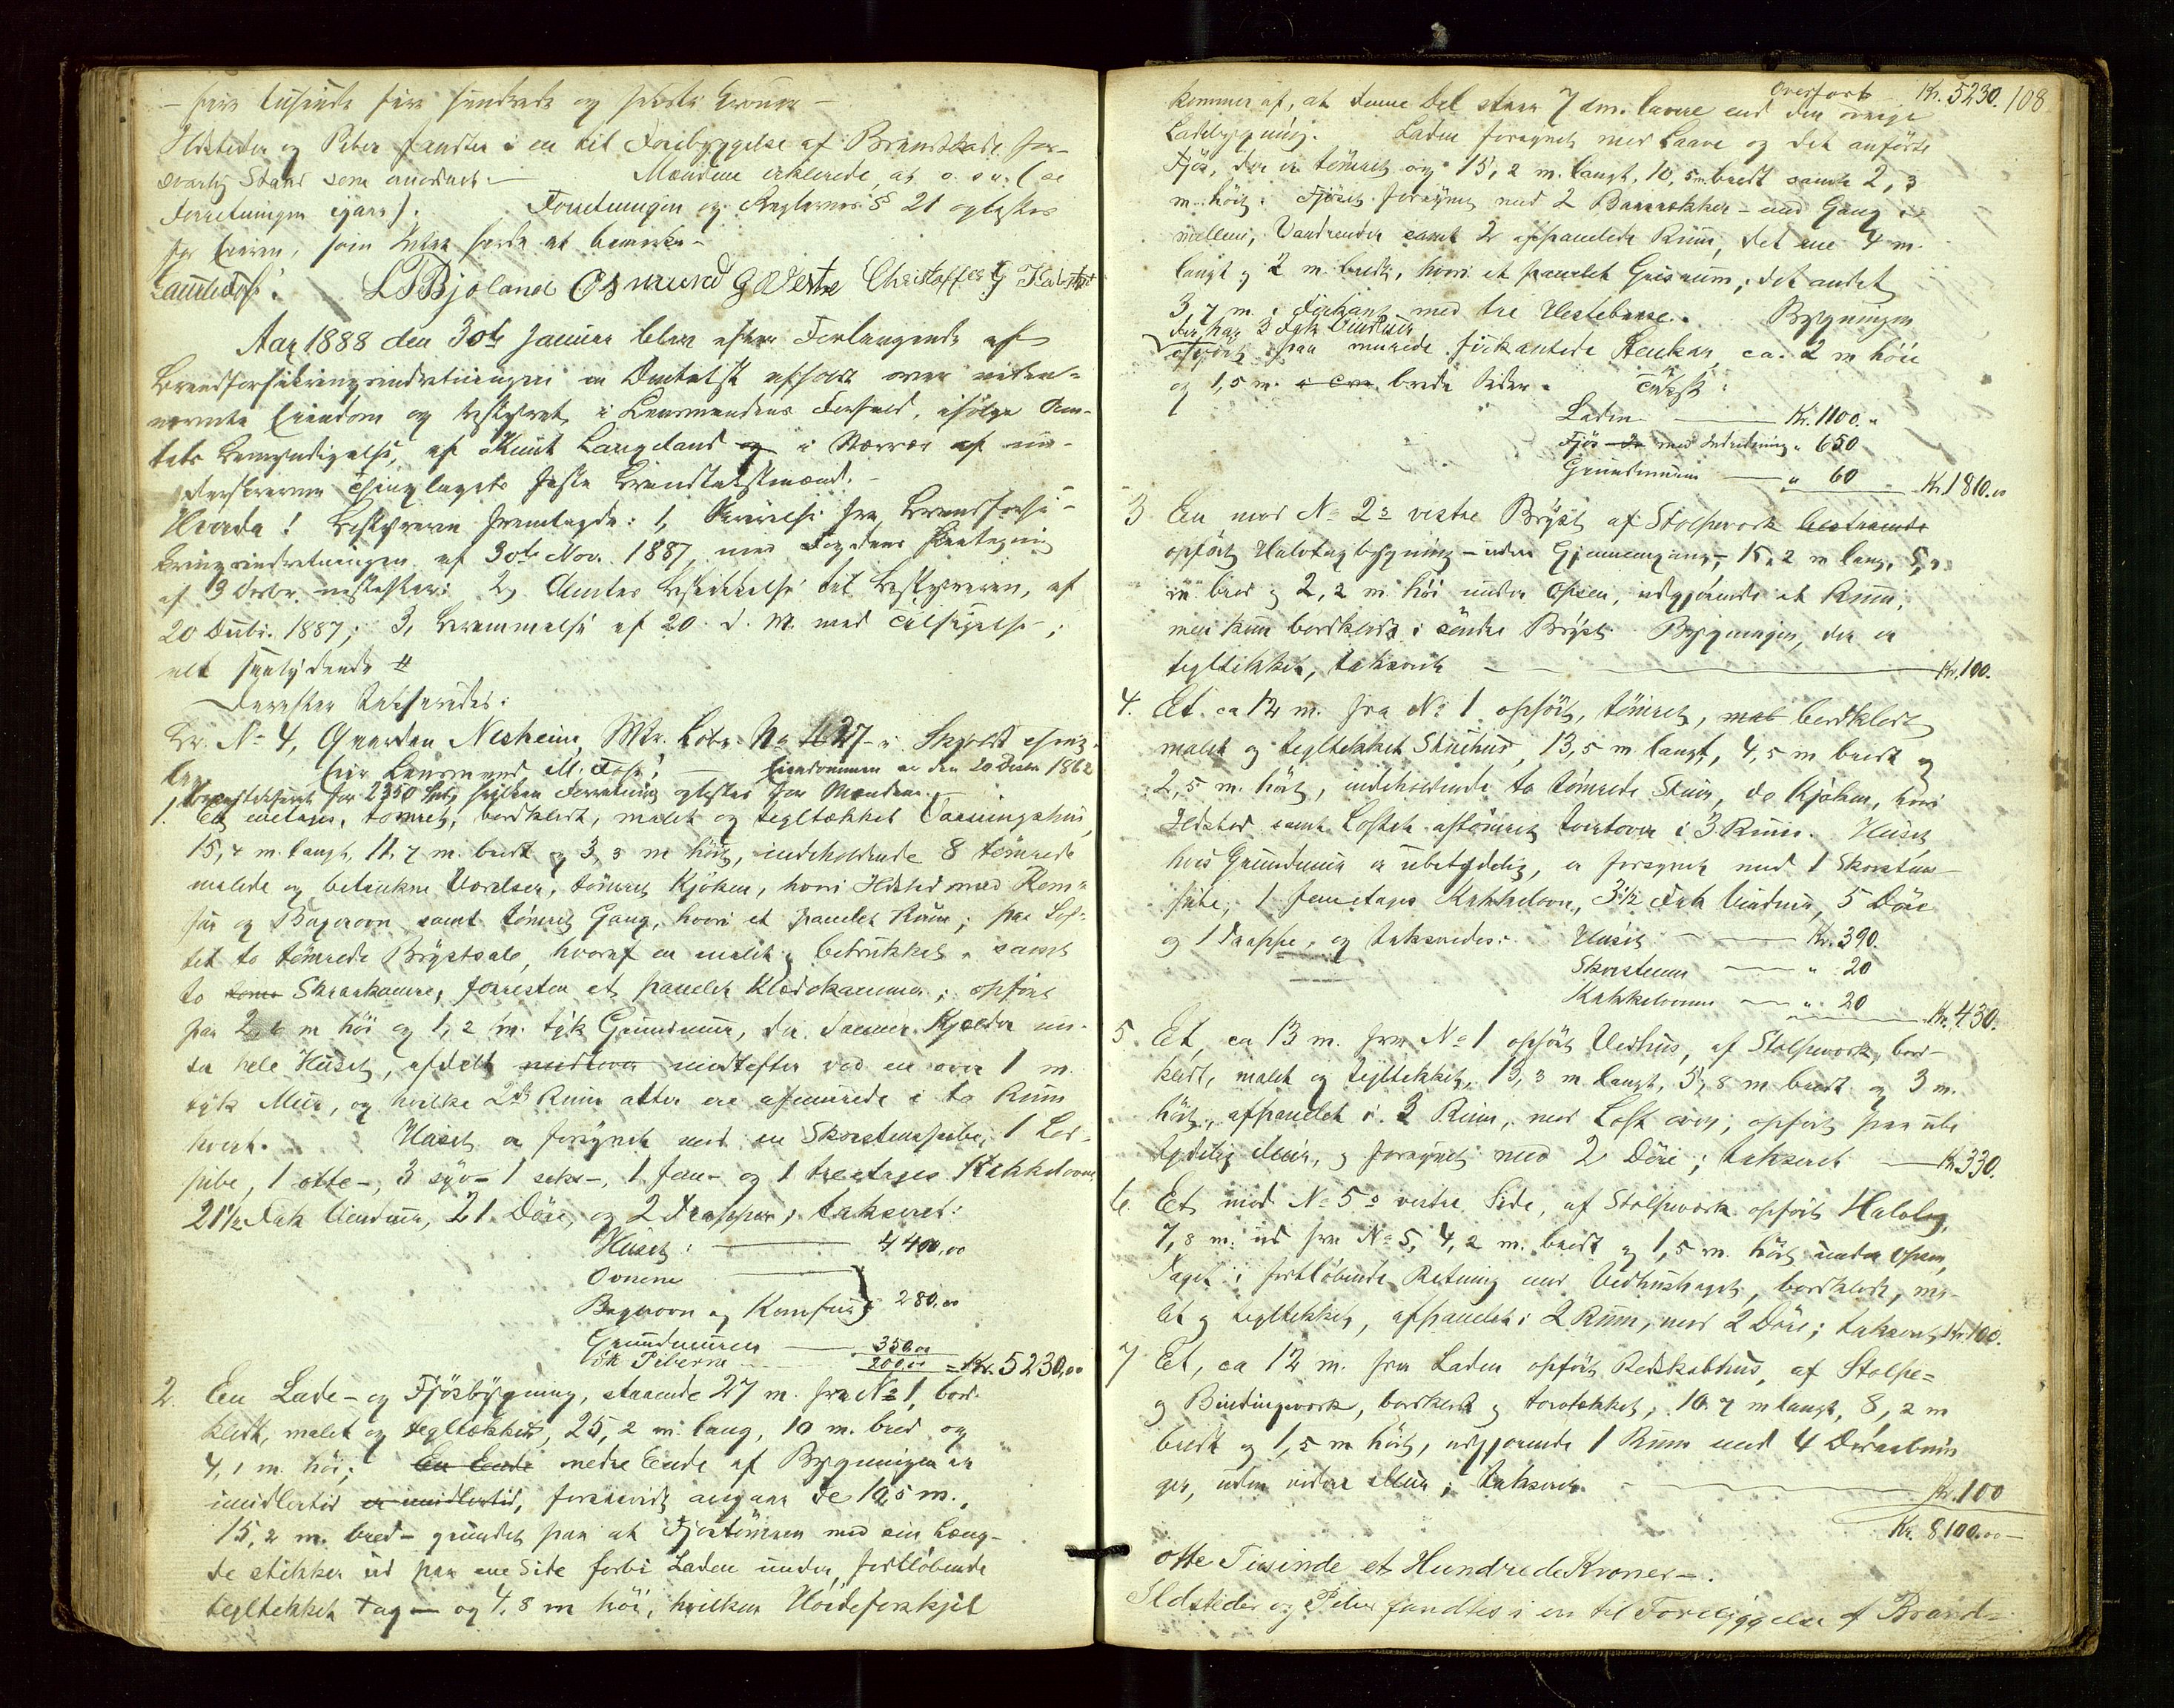 – fire tusinde fire hundrede og seksti Kroner –
Ildsteder og Piber fandtes i en til Forebyggelse af Brandskade for-
svarlig Stand som anordnet. – Mændene erklerede, at o. s. v. (se
Forretningen igaar). Forretningen og Reglernes § 21 oplæstes
for Eieren, som Intet havde at bemærke –
L T Bjoland Osmund G Vestre Christoffer G
Aar 1888 den 30te Januar blev efter Forlangende af
Brandforsikringsindretningen en Omtakst afholdt over neden-
nevnte Eiendom og bestyret, i Lensmandens Forfald, ifølge Am-
tets Bemyndigelse, af Knut Langeland og i Nærvær af un-
derskrevne Thinglagets faste Brandtakstmænd. –
Hvorda! Bestyreren fremlagde: 1, Skrivelse fra Brandforsi-
kringsindretningen af 30te Nov. 1887, med Fogdens Paategning
af 9 Decbr. næstefter; 2, Amtets Beskikkelse til Bestyreren, af
20 Decbr. 1887; 3, Berammelse af 20. d. M. med Tilsigelse;
alt saalydende #
Derefter taksteredes:
Br. No 4, Gaarden Nesheim, Mtr. Løbe No 27 i Skjold Thing-
lag Eier Lensmand M. Eiendommen er den 20 Decbr 1862
brandtakseret for 2350 Spd, hvilken Forretning oplæstes for Mændene. –
1. Et enetages, tømret, bordkledt, malet og tegltækket Vaaningshus,
15,4 m. langt, 11,7 m. bredt og 3,3 m høit, indeholdende 8 tømrede
malede og betrukne Værelser, tømret Kjøken, hvori Ildsted med Kom-
fur og Bagerovn samt tømret Gang, hvori et panelet Rum; paa Lof-
tet to tømrede Brystsale, hvoraf en malet og betrukket, samt
to Skraakamre, forresten et panelet Klædekammer; opført
paa 2, m høi og 1,2 m. tyk Grundmur, der danner Kjælder un-
der hele Huset, afdelt midtefter ved en over 1 m.
tyk Mur, og hvilke 2de Rum atter ere afmurede i to Rum
hvert. Huset er forsynet med en Skorstenspibe, 1 Lod-
pibe, 1 otte-, 3 syv- 1 seks-, 1 fem- og 1 treetages Kakkelovne
21½ Fak Vinduer, 21 Døre, og 2 Trapper; takseret:
Huset: 4400,00
Ovnene
Bagerovn og Komfur 280,00
Grundmuren 350,00
Piberne 200,00 = Kr. 5230,00
2. En Lade- og Fjøsbygning, staaende 27 m. fra No 1, bord-
kledt, malet og tegltækket, 25,2 m. lang, 10 m. bred og
4,1 m. høi; En Ende nedre Ende af Bygningen er
imidlertid er imidlertid, forsaavidt angaar de 10,5 m.,
15,2 m. bred – grundet paa at Fjøstømren med sin Læng-
de stikker ud paa ene Side forbi Laden under, fortløbende
tegltekket Tag – og 4,8 m høi, hvilken Høideforskjel
Overført Kr. 5230. 108
kommer af, at denne Del staar 7 dm. lavere end den øvrige
Ladebygning. Laden forsynet med Laave og det anførte
Fjøs, der er tømret og 15,2 m. langt, 10,5 m. bredt samt 2,3
m. høit. Fjøset forsynet med 2 Baasrekker – med Gang i-
mellem, Vandrender samt 2 afpanelede Rum, det ene 4 m.
langt og 2 m. bredt, hvori et panelet Grisrum; det andet
3,7 m. i Firkant med tre Hestebaase. Bygningen
der har 3 Fak Vinduer
opført paa murede firkantede Stenkar, ca. 2 m høie
og 1,5 m. brede Sider. Takst:
Laden Kr. 1100. "
Fjøs med Indredning " 650
Grundmuren " 60 Kr. 1810.00
3 En mod No 2s vestre Bryst af Stolpeværk bestaaende
opført Halvtagbygning – uden Gjennemgang, – 15,2 m lang, 5,
m. bred og 2,2 m. høi under Opsen, udgjørende et Rum,
men kun bordkledt i søndre Bryst. Bygningen, der er
tegltækket, takseret Kr. 100.
4. Et ca 12 m. fra No 1 opført, tømret, mal bordkledt
malet og tegltekket Stuehus, 13,5 m langt, 4,5 m bredt og
2,5 m. høit, indeholdende to tømrede Stuer, do Kjøken, hvori
Ildsted samt Loftet aftømret tvertover i 3 Rum. Huset
hvis Grundmur er ubetydelig, er forsynet med 1 Skorstens-
pibe, 1 femetages Kakkelovn, 3½ Fak Vinduer, 5 Døre
og 1 Trappe, og takseredes: Huset Kr. 390.
Skorstenen " 20
Kakkelovnen " 20 Kr. 430.
5. Et, ca 13 m. fra No 1 opført Vedhus, af Stolpeværk, bord-
kledt, malet og tegltekket, 13,3 m langt, 5,8 m bredt og 3 m.
høit, afpanelet i 2 Rum, med Loft over; opført paa ube
tydelig Mur, og forsynet med 2 Døre; takseret Kr. 330.
6. Et mod No 5s vestre Side, af Stolpeværk opført Halvtag,
7,8 m. ud fra No 5, 4,2 m. bredt og 1,5 m. høit under Opsen,
Taget i fortløbende Retning med Vedhustaget, bordkledt, ma-
let og tegltekket, afpanelet i 2 Rum, med 2 Døre; takseret Kr. 100.
7 Et, ca 12 m. fra Laden opført Redskabhus, af Stolpe-
og Bindingværk, bordkledt og torvtekket, 10.7 m langt, 8,2 m
bredt og 1,5 m høit, udgjørende 1 Rum med 4 Døraabnin
ger, uden videre Mur; takseret Kr. 100
Kr. 8100.00 –
otte Tusinde et Hundrede Kroner –.
Ildsteder og Piber fandtes i en til Forebyggelse af Brand-